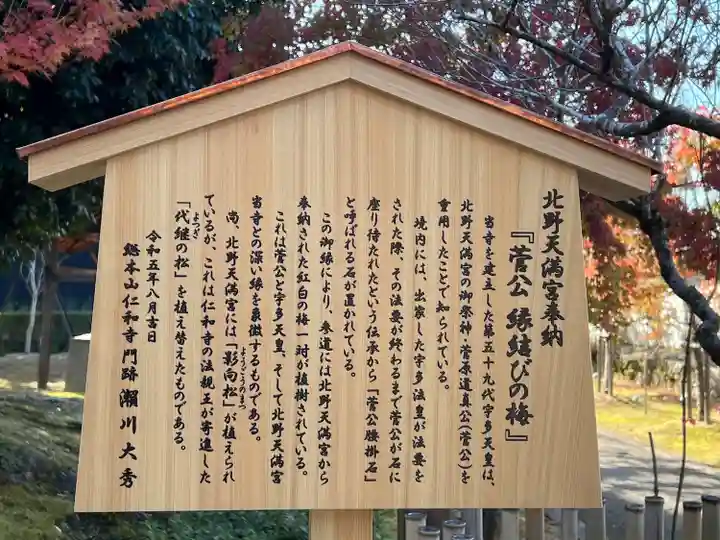 北野天満宮奉納
『菅公 縁結びの梅』
当寺を建立した第五十九代宇多天皇は、
北野天満宮の御祭神・菅原道真公(菅公)を
重用したことで知られている。
境内には、出家した宇多法皇が法要を
された際、その法要が終わるまで菅公が石に
座り待たれたという伝承から「菅公腰掛石」
と呼ばれる石が置かれている。
この御縁により、参道には北野天満宮から
奉納された紅白の梅一対が植樹されている。
これは菅公と宇多天皇、そして北野天満宮
当寺との深い縁を象徴するものである。
尚、北野天満宮には「影向松」が植えられ
ようごうのまつ
ているが、これは仁和寺の法親王が寄進した
「代継の松」を植え替えたものである。
よつぎ
令和五年八月吉日
総本山仁和寺 門跡 瀨川大秀